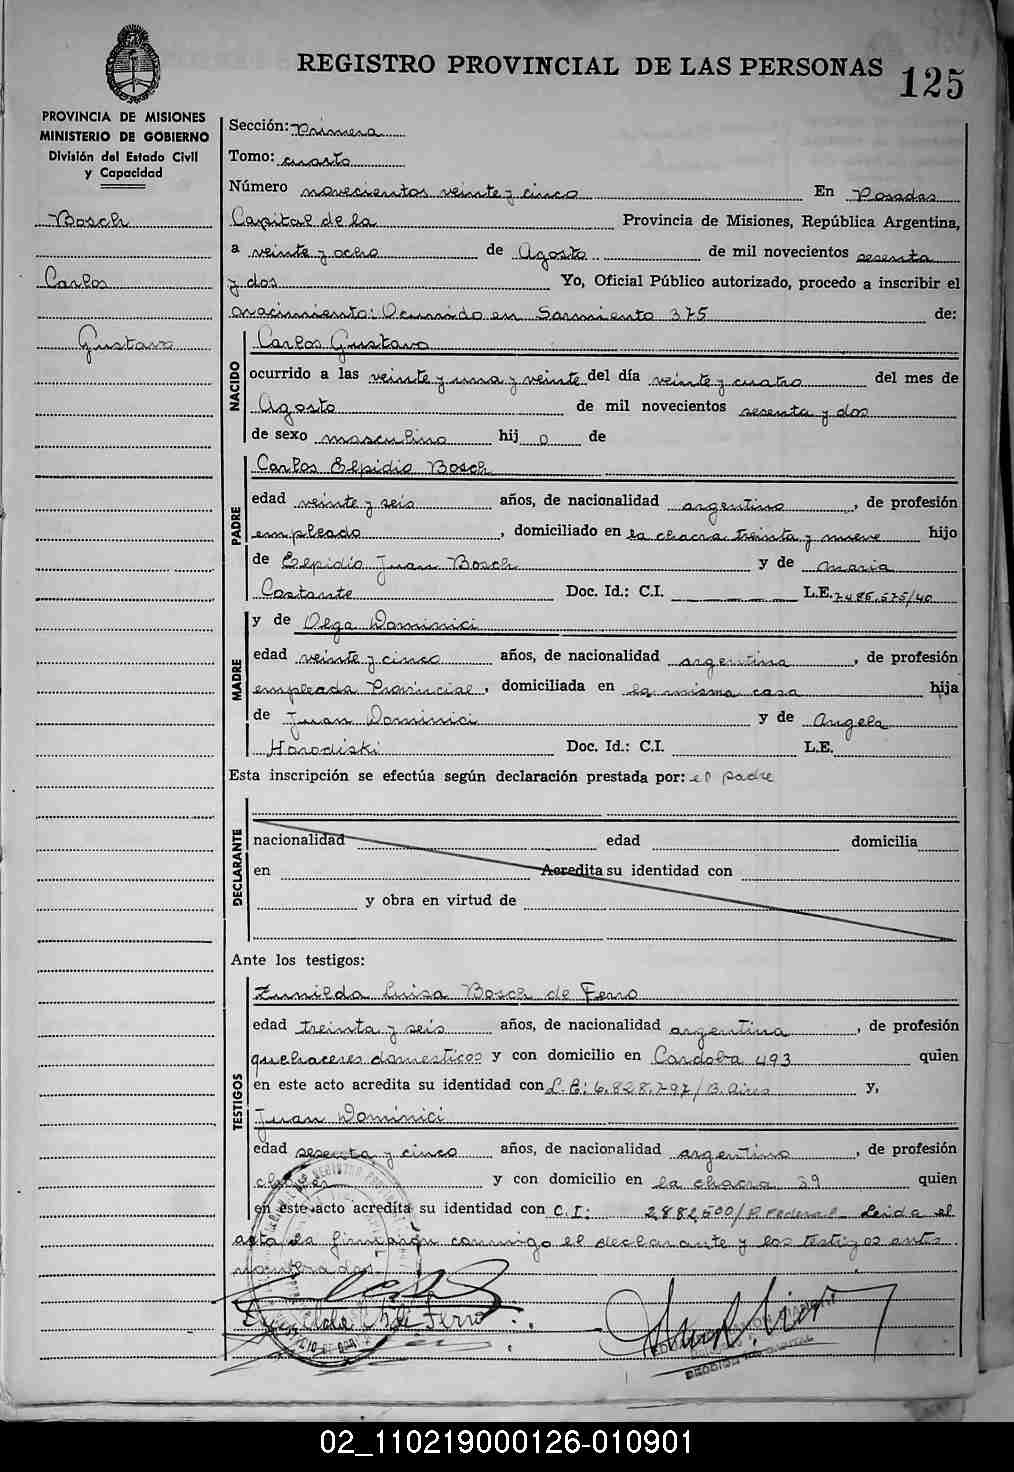 REGISTRO PROVINCIAL DE LAS PERSONAS
125
PROVINCIA DE MISIONES
MINISTERIO DE GOBIERNO
División del Estado Civil
y Capacidad
Bosch
Carlos
Gustavo
Sección: Primera
Tomo: cuarto
Número novecientos veinte y cinco En Posadas
Capital de la Provincia de Misiones, República Argentina,
a veinte y ocho de Agosto de mil novecientos sesenta
y dos Yo, Oficial Público autorizado, procedo a inscribir el
nacimiento: Ocurrido en Sarmiento 375 de:
NACIDO
Carlos Gustavo
ocurrido a las veinte y una y veinte del día veinte y cuatro del mes de
Agosto de mil novecientos sesenta y dos
de sexo masculino hij o de
PADRE
Carlos Elpidio Bosch
edad veinte y seis años, de nacionalidad argentino, de profesión
empleado, domiciliado en la chacra treinta y nueve hijo
de Elpidio Juan Bosch y de Maria
Costante Doc. Id.: C.I. L.E. 7486.575/40
MADRE
y de Olga Dominici
edad veinte y cinco años, de nacionalidad argentina, de profesión
empleada Provincial, domiciliada en la misma casa hija
de Juan Dominici y de Angela
Horodiski Doc. Id.: C.I. L.E.
Esta inscripción se efectúa según declaración prestada por: el padre
DECLARANTE
nacionalidad edad domicilia
en Acredita su identidad con
y obra en virtud de
Ante los testigos:
TESTIGOS
Zunilda Luisa Bosch de Ferro
edad treinta y seis años, de nacionalidad argentina, de profesión
quehaceres domesticos y con domicilio en Cordoba 493 quien
en este acto acredita su identidad con L.E: 6.828.797/B. Aires y,
Juan Dominici
edad sesenta y cinco años, de nacionalidad argentino, de profesión
y con domicilio en la chacra 39 quien
en este acto acredita su identidad con C.I: 2882500/P. Federal Leida el
acta la firmaron conmigo el declarante y los testigos ante
nombrados.
Ferro
02_110219000126-010901